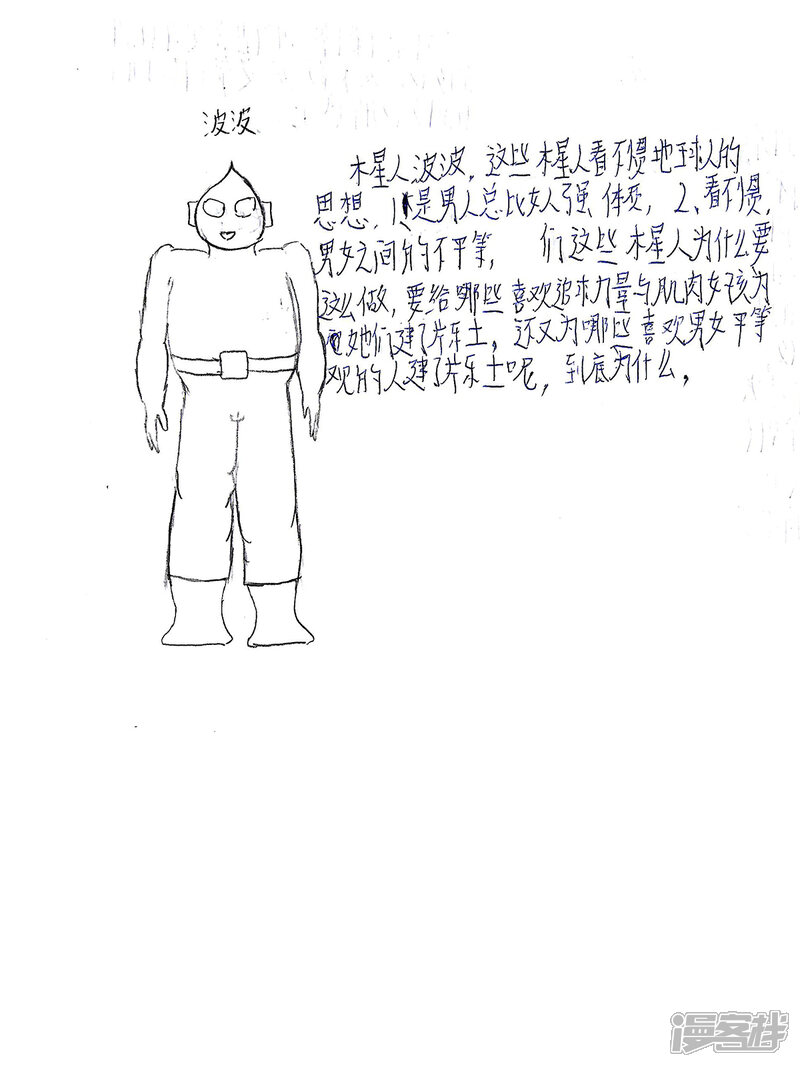 波波
木星人波波，这些木星人看不惯地球人的
思想，1是男人总比女人强体质，2、看不惯，
男女之间的不平等， 们这些木星人为什么要
这么做，要给哪些喜欢追求力量与肌肉女孩为
她们建了片乐土，还又为哪些喜欢男女平等
观的人建了片乐土呢，到底为什么，
漫客栈